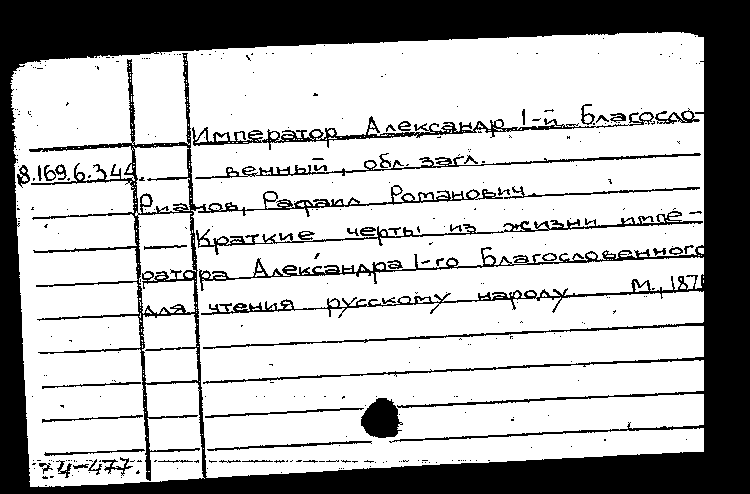 Император Александр I-й Благосло-
8.169.6.344. венный, обл. загл.
Рианов, Рафаил Романович.
Краткие черты из жизни импе-
ратора Александра I-го Благословенного
для чтения русскому народу. М.,
24-477.